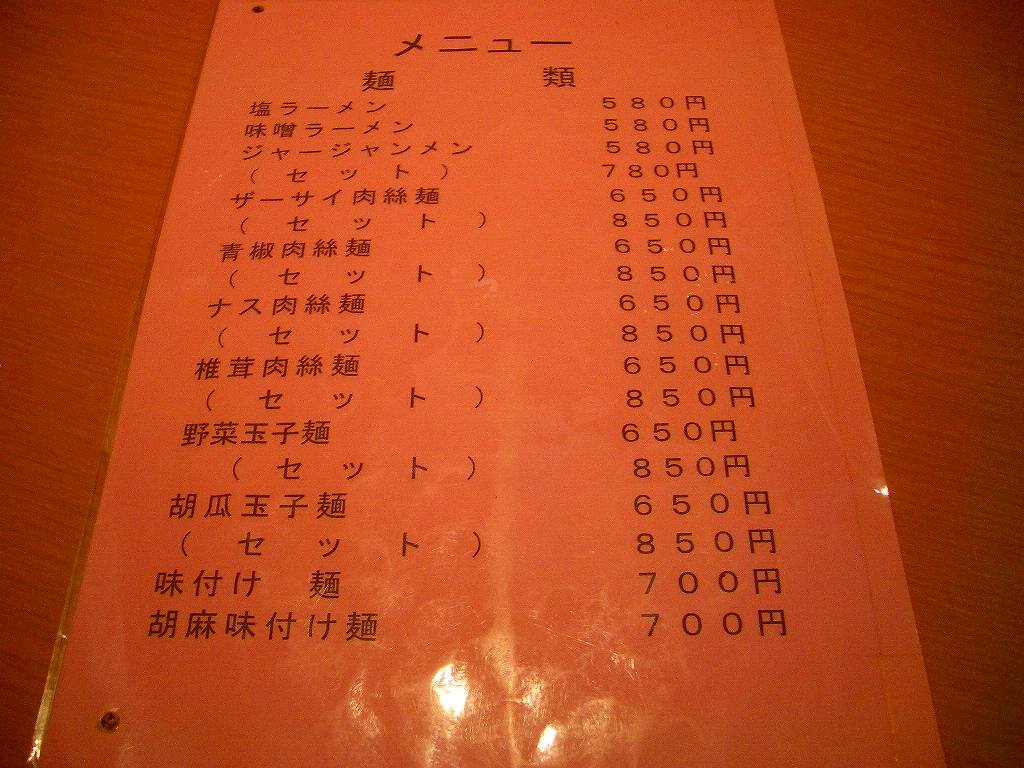 メニュー
麺 類
塩ラーメン 580円
味噌ラーメン 580円
ジャージャンメン 580円
(セット) 780円
ザーサイ肉絲麺 650円
(セット) 850円
青椒肉絲麺 650円
(セット) 850円
ナス肉絲麺 650円
(セット) 850円
椎茸肉絲麺 650円
(セット) 850円
野菜玉子麺 650円
(セット) 850円
胡瓜玉子麺 650円
(セット) 850円
味付け 麺 700円
胡麻味付け麺 700円